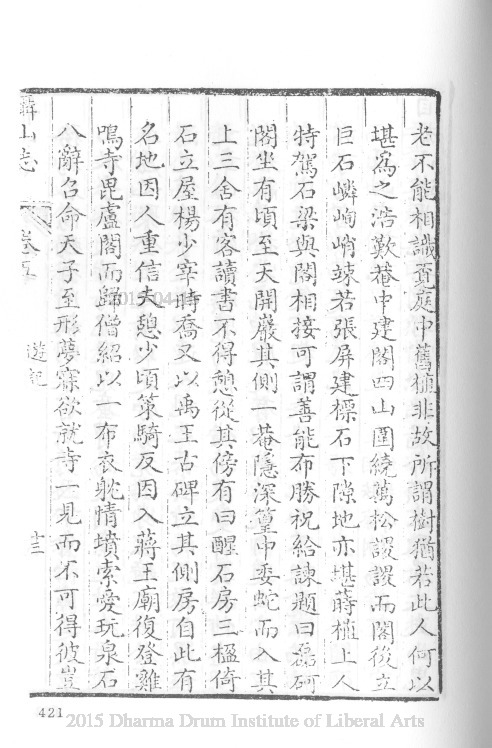 老不能相識頁庭中舊植非故所謂樹猶若此人何以
堪為之浩歎菴中建閣四山圍繞萬松謖謖而閣後立
巨石嶙峋峭竦若張屏建標石下隙地亦堪蒔植上人
特駕石梁與閣相接可謂善能布勝祝給諫題曰磊砢
閣坐有頃至天開巖其側一菴隱深篁中委蛇而入其
上三舍有客讀書不得憩從其傍有曰醒石房三楹倚
石立屋楊少宰時喬又以禹王古碑立其側房自此有
名地因人重信夫憩少頃策騎反因入蔣王廟復登雞
鳴寺毘盧閣而歸僧紹以一布衣躭情墳索愛玩泉石
八辭召命天子至形夢寐欲就寺一見而不可得彼豈
山志 卷五 遊記 十三
421
2015 Dharma Drum Institute of Liberal Arts